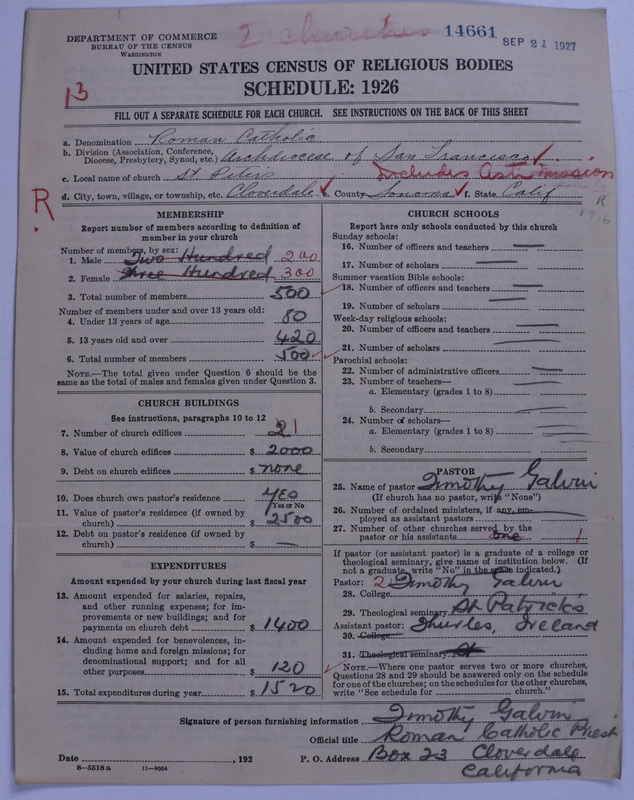 DEPARTMENT OF COMMERCE
BUREAU OF THE CENSUS
WASHINGTON
2 churches
14661
SEP 21 1927
13
UNITED STATES CENSUS OF RELIGIOUS BODIES
SCHEDULE: 1926
FILL OUT A SEPARATE SCHEDULE FOR EACH CHURCH. SEE INSTRUCTIONS ON THE BACK OF THIS SHEET
a. Denomination Roman Catholic
b. Division (Association, Conference, Diocese, Presbytery, Synod, etc.) Archdiocese of San Francisco
c. Local name of church St Peters
Includes Asti Mission
d. City, town, village, or township, etc. Cloverdale e. County Sonoma f. State Calif
R
R
MEMBERSHIP
Report number of members according to definition of
member in your church
Number of members, by sex:
1. Male Two Hundred 200
2. Female Three Hundred 300
3. Total number of members 500
Number of members under and over 13 years old:
4. Under 13 years of age 80
5. 13 years old and over 420
6. Total number of members 500
NOTE.—The total given under Question 6 should be the
same as the total of males and females given under Question 3.
CHURCH BUILDINGS
See instructions, paragraphs 10 to 12
7. Number of church edifices 2 1
8. Value of church edifices $ 2000
9. Debt on church edifices $ none
10. Does church own pastor's residence yes
(Yes or No)
11. Value of pastor's residence (if owned by
church) $ 2500
12. Debt on pastor's residence (if owned by
church) $ —
EXPENDITURES
Amount expended by your church during last fiscal year
13. Amount expended for salaries, repairs,
and other running expenses; for im-
provements or new buildings; and for
payments on church debt $ 1400
14. Amount expended for benevolences, in-
cluding home and foreign missions; for
denominational support; and for all
other purposes $ 120
15. Total expenditures during year $ 1520
CHURCH SCHOOLS
Report here only schools conducted by this church
Sunday schools:
16. Number of officers and teachers —
17. Number of scholars —
Summer vacation Bible schools:
18. Number of officers and teachers —
19. Number of scholars —
Week-day religious schools:
20. Number of officers and teachers —
21. Number of scholars —
Parochial schools:
22. Number of administrative officers —
23. Number of teachers—
a. Elementary (grades 1 to 8) —
b. Secondary —
24. Number of scholars—
a. Elementary (grades 1 to 8) —
b. Secondary —
PASTOR
25. Name of pastor Timothy Galvin
(If church has no pastor, write "None")
26. Number of ordained ministers, if any, em-
ployed as assistant pastors —
27. Number of other churches served by the
pastor or his assistants one 1
If pastor (or assistant pastor) is a graduate of a college or
theological seminary, give name of institution below. (If
not a graduate, write "No" in the space indicated.)
Pastor: 2 Timothy Galvin
28. College
29. Theological seminary St Patrick's
Assistant pastor: Thurles, Ireland
30. College
31. Theological seminary
NOTE.—Where one pastor serves two or more churches,
Questions 28 and 29 should be answered only on the schedule
for one of the churches; on the schedules for the other churches,
write "See schedule for church."
Signature of person furnishing information Timothy Galvin
Official title Roman Catholic Priest
Date , 192 P. O. Address Box 23 Cloverdale
California
8—5518 a 11—9054